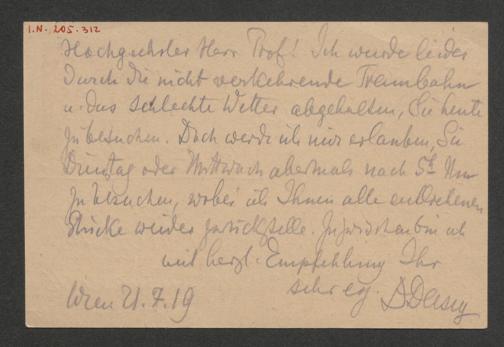 I.N. 205.312
Hochgeehrter Herr Prof! Ich wurde leider
durch die nicht verkehrende Trambahn
u. das schlechte Wetter abgehalten, Sie heute
zu besuchen. Doch werde ich mir erlauben, Sie
Dienstag oder Mittwoch abermals nach 5h Uhr
zu besuchen, wobei ich Ihnen alle entliehenen
Stücke wieder zurückstelle. Inzwischen bin ich
mit herzl. Empfehlung Ihr
sehr erg.
Wien 21.7.19